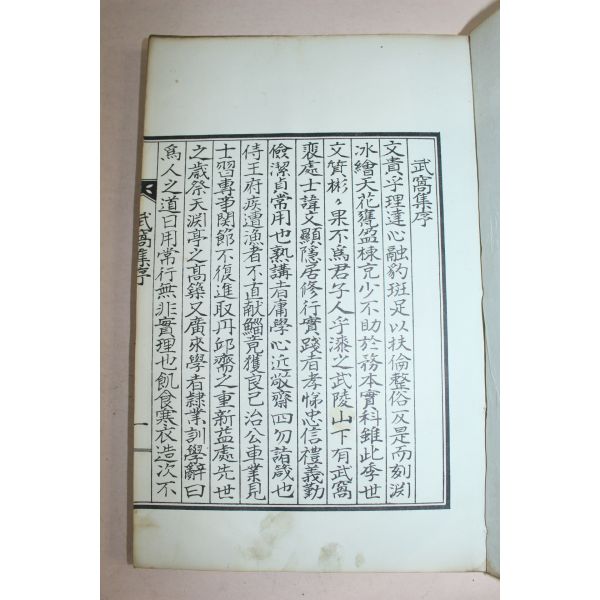 武窩集序
文貴乎理達心融豹斑足以扶倫整俗反是而刻淵
冰繪天花甕盆棟充少不助於務本實科雖此季世
文質彬々果不爲君子人乎漆之武陵山下有武窩
裵處士諱文顯隱居修行實踐者孝悌忠信禮義勤
儉潔貞常用也熟講者庸學心近敬齋四勿諸箴也
侍王府疾遭漁者不直献鯔竟獲良已治公車業見
士習專事関節不復進取丹邱齋之重新益處先世
之歲祭天淵亭之高築又廣來學者隷業訓學辭曰
爲人之道日用常行無非實理也飢食寒衣造次不
武窩集序
一